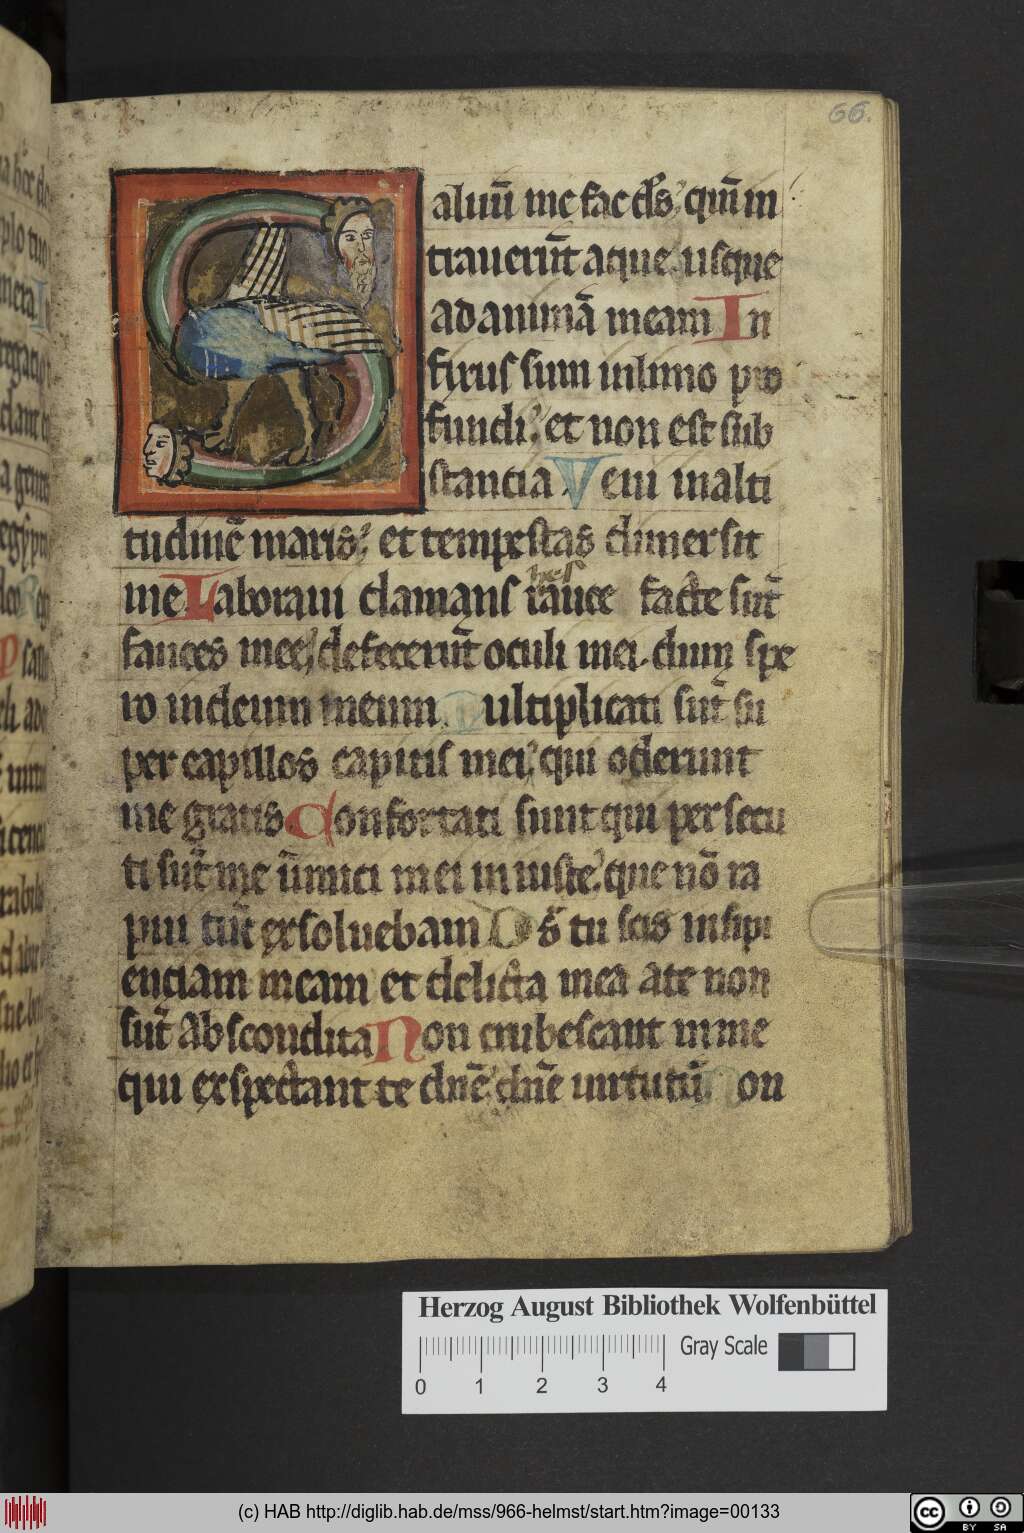 66.
Saluū me fac d̄s, qm̄ in
trauerūt aque usque
ad animā meam In
fixus sum in limo pro
fundi, et non est sub
stancia Veni in alti
tudinē maris, et tempestas dimersit
me Laboraui clamans rauce facte sūt
fauces mee, defecerūt oculi mei dum spe
ro in deum meum Multiplicati sūt su
per capillos capitis mei, qui oderunt
me gratis Confortati sunt qui persecu
ti sūt me inimici mei iniuste, que nō ra
pui tūc exsoluebam Ds̄ tu scis insipi
enciam meam et delicta mea a te non
sūt abscondita Non erubescant in me
qui exspectant te dnē, dnē uirtutū Non
Herzog August Bibliothek Wolfenbüttel
Gray Scale
0 1 2 3 4
(c) HAB http://diglib.hab.de/mss/966-helmst/start.htm?image=00133
cc BY SA